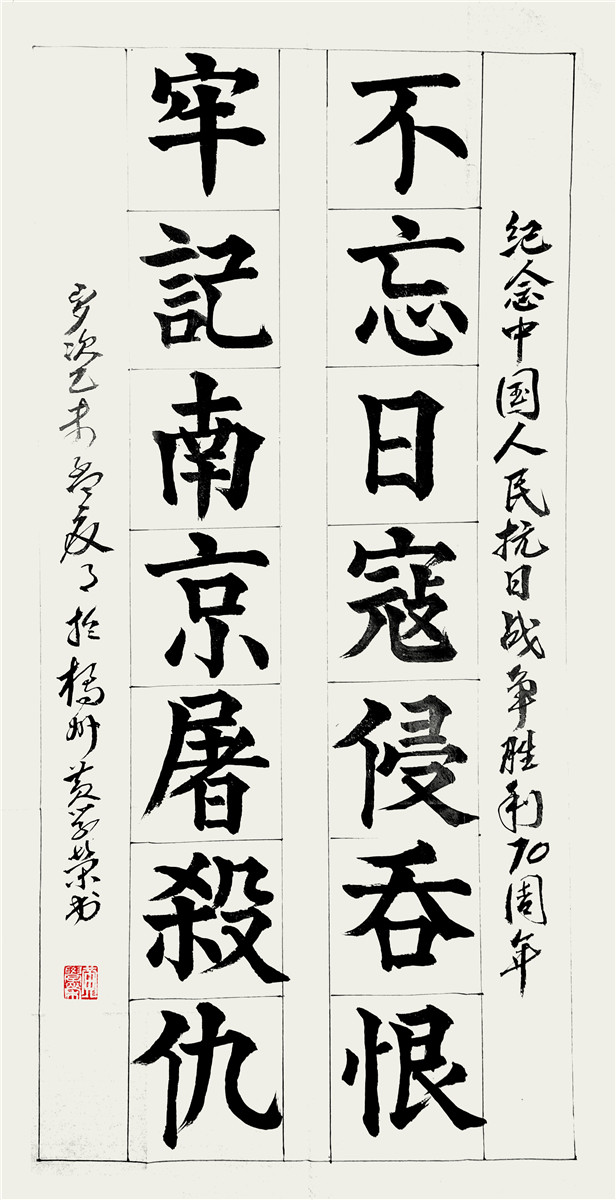 纪念中国人民抗日战争胜利70周年
不忘日寇侵吞恨
牢記南京屠殺仇
岁次乙未孟夏月於橘州黄学荣书